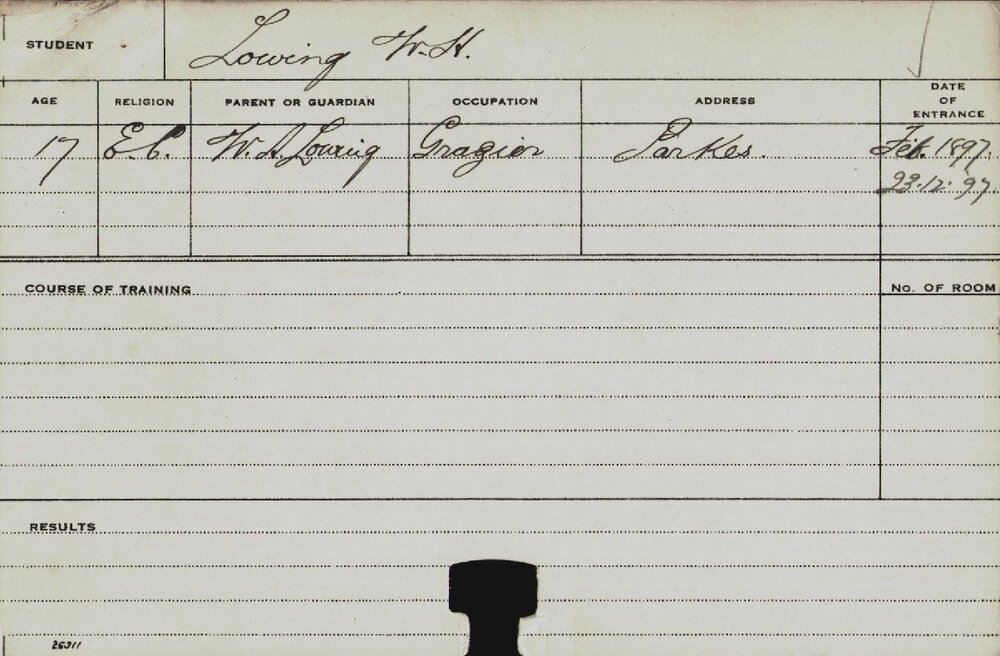 STUDENT Lowing W.H.
AGE RELIGION PARENT OR GUARDIAN OCCUPATION ADDRESS DATE OF ENTRANCE
17 E.C. W.A. Lowing Grazier Parkes. Feb. 1897.
23.12.97.
COURSE OF TRAINING No. OF ROOM
RESULTS
26311